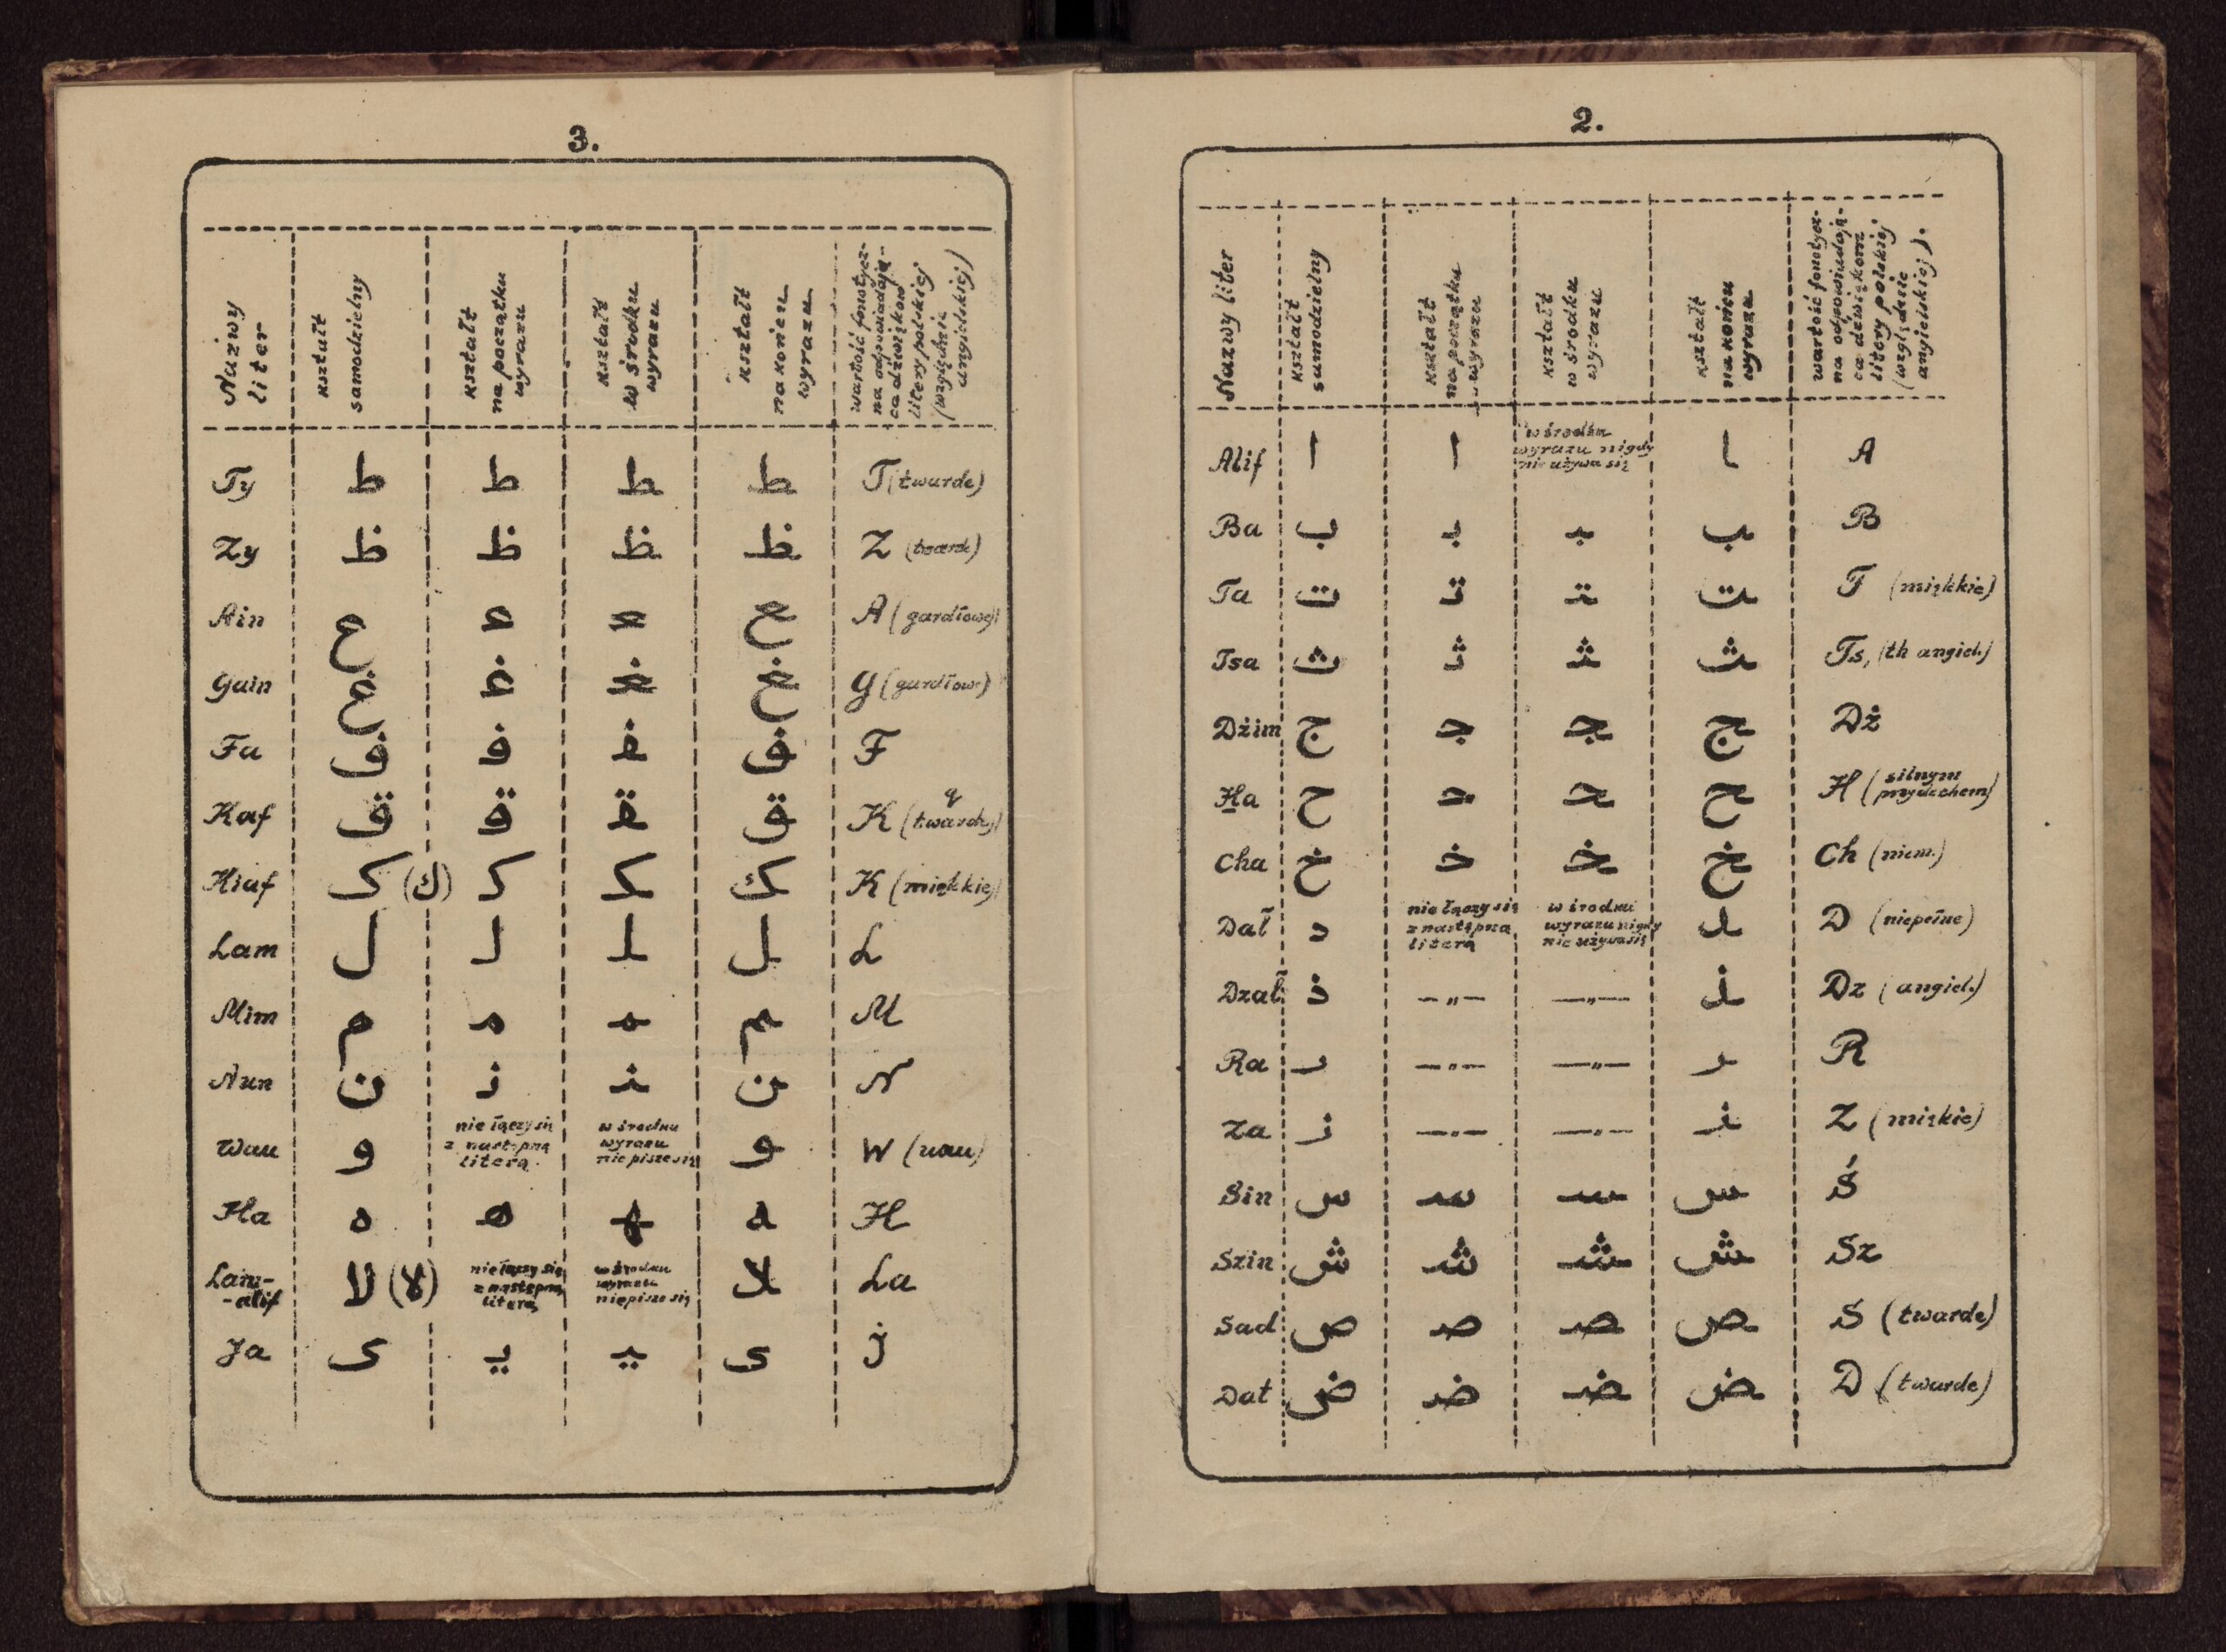 2.
Nazwy liter
kształt
samodzielny
kształt
na początku
wyrazu
kształt
w środku
wyrazu
kształt
na końcu
wyrazu
wartość fonetycz-
na odpowiadają-
ca dźwiękom
litery polskiej
(względnie
angielskiej).
Alif ا ا w środku wyrazu nigdy nie używa się ـا A
Ba ب بـ ـبـ ـب B
Ta ت تـ ـتـ ـت T (miękkie)
Tsa ث ثـ ـثـ ـث Ts, (th angiel.)
Dżim ج جـ ـجـ ـج Dż
Ha ح حـ ـحـ ـح H (silnym przydechem)
Cha خ خـ ـخـ ـخ Ch (niem.)
Dal̃ د nie łączy się z następną literą w środku wyrazu nigdy nie używa się ـد D (niepełne)
Dzal̃ ذ —„— —„— ـذ Dz (angiel.)
Ra ر —„— —„— ـر R
Za ز —„— —„— ـز Z (miękie)
Sin س سـ ـسـ ـس Ś
Szin ش شـ ـشـ ـش Sz
Sad ص صـ ـصـ ـص S (twarde)
Dat ض ضـ ـضـ ـض D (twarde)
3.
Nazwy
liter
kształt
samodzielny
kształt
na początku
wyrazu
kształt
w środku
wyrazu
kształt
na końcu
wyrazu
wartość fonetycz-
na odpowiadają-
ca dźwiękow
litery polskiej
(względnie
angielskiej)
Ty ط طـ ـطـ ـط T (twarde)
Zy ظ ظـ ـظـ ـظ Z (twarde)
Ain ع عـ ـعـ ـع A (gardłowe)
Gain غ غـ ـغـ ـغ G (gardłowe)
Fa ف فـ ـفـ ـف F
Kaf ق قـ ـقـ ـق q K (twardy)
Kiaf ک (ك) کـ ـکـ ـك K (miękkie)
Lam ل لـ ـلـ ـل L
Mim م مـ ـمـ ـم M
Nun ن نـ ـنـ ـن N
Wau و nie łączy się z następną literą w środku wyrazu nie pisze się ـو W (uau)
Ha ه هـ ـهـ ـه H
Lam-
-alif لا (لا) nie łączy się z następną literą w środku wyrazu nie pisze się ـلا La
Ja ى يـ ـيـ ـى J